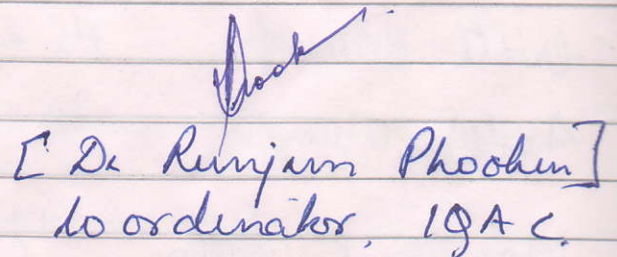 [Dr Runjun Phookun]
Coordinator, IQAC